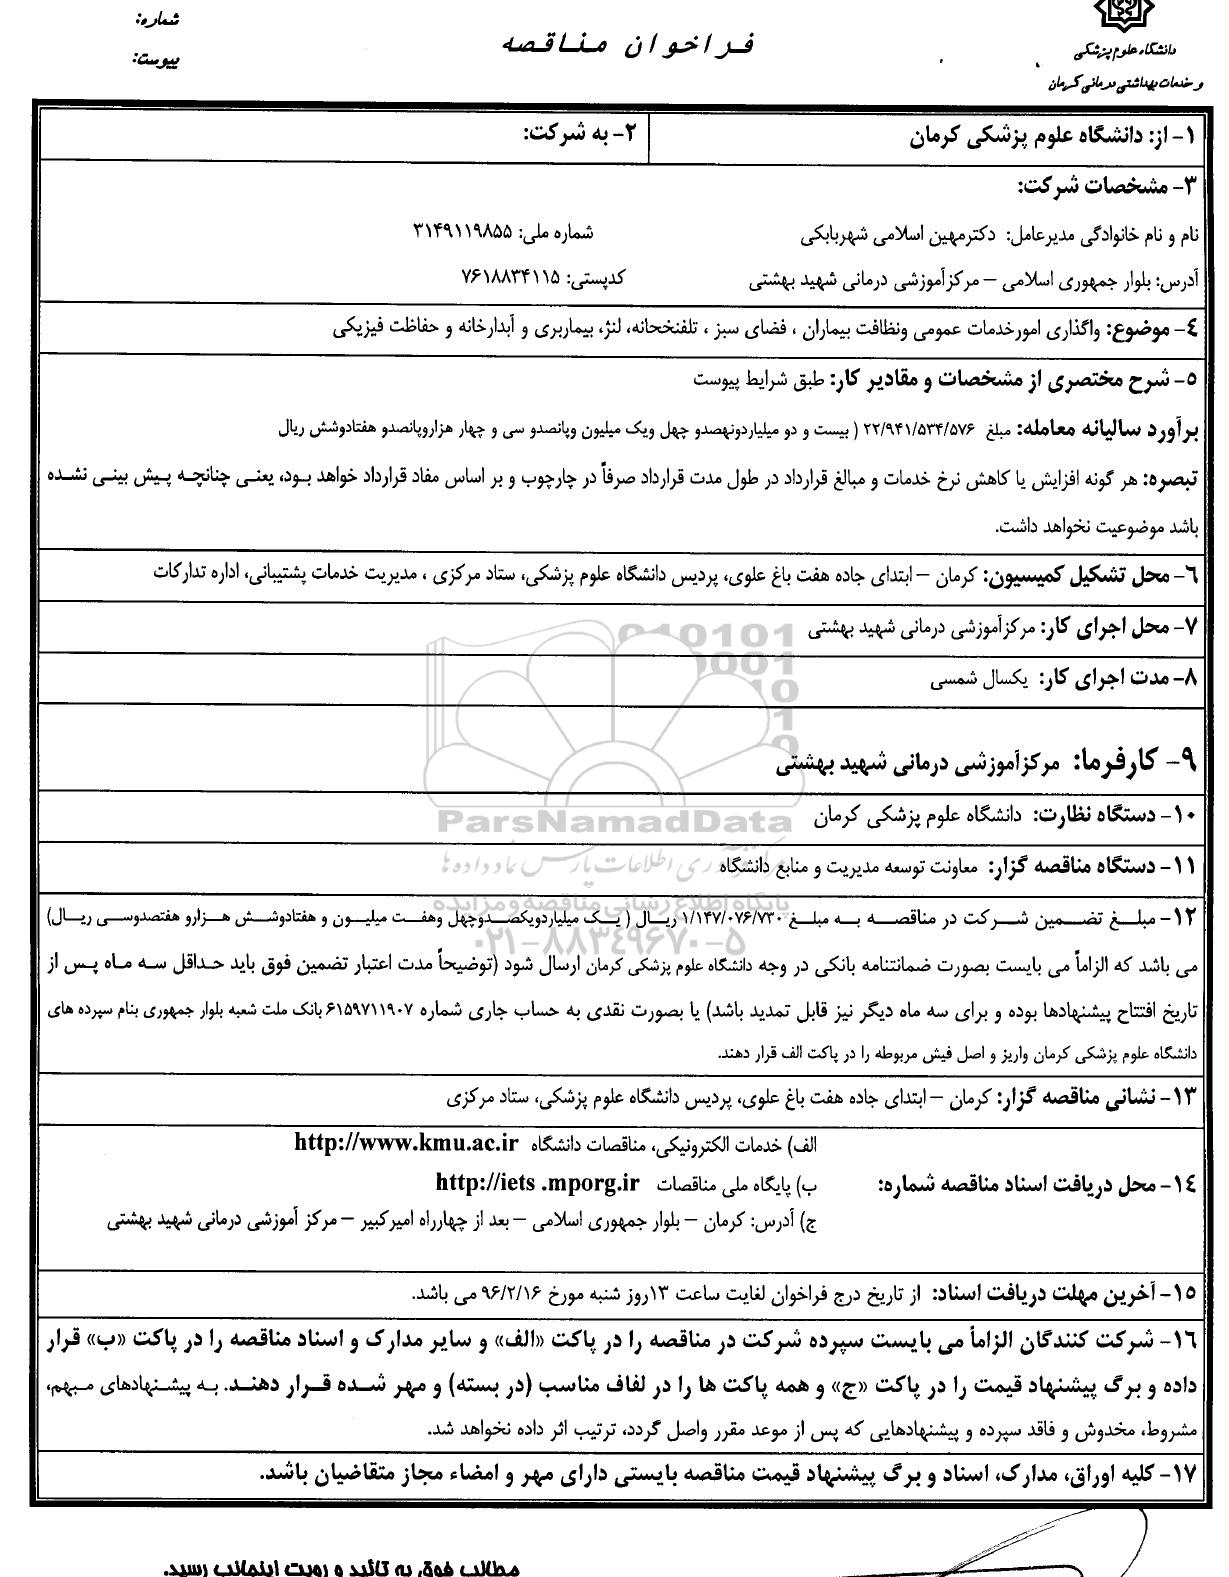 شماره:
پیوست:
فراخوان مناقصه
دانشگاه علوم پزشکی
و خدمات بهداشتی درمانی کرمان
۱- از: دانشگاه علوم پزشکی کرمان
۲- به شرکت:
۳- مشخصات شرکت:
نام و نام خانوادگی مدیرعامل: دکترمهین اسلامی شهربابکی شماره ملی: ۳۱۴۹۱۱۹۸۵۵
آدرس: بلوار جمهوری اسلامی – مرکزآموزشی درمانی شهید بهشتی کدپستی: ۷۶۱۸۸۳۴۱۱۵
۴- موضوع: واگذاری امورخدمات عمومی ونظافت بیماران ، فضای سبز ، تلفنخانه، لنژ، بیماربری و آبدارخانه و حفاظت فیزیکی
۵- شرح مختصری از مشخصات و مقادیر کار: طبق شرایط پیوست
برآورد سالیانه معامله: مبلغ ۲۲/۹۴۱/۵۳۴/۵۷۶ ( بیست و دو میلیاردونهصدو چهل ویک میلیون وپانصدو سی و چهار هزاروپانصدو هفتادوشش ریال
تبصره: هر گونه افزایش یا کاهش نرخ خدمات و مبالغ قرارداد در طول مدت قرارداد صرفاً در چارچوب و بر اساس مفاد قرارداد خواهد بود، یعنی چنانچه پیش بینی نشده
باشد موضوعیت نخواهد داشت.
۶- محل تشکیل کمیسیون: کرمان – ابتدای جاده هفت باغ علوی، پردیس دانشگاه علوم پزشکی، ستاد مرکزی ، مدیریت خدمات پشتیبانی، اداره تدارکات
۷- محل اجرای کار: مرکزآموزشی درمانی شهید بهشتی
۸- مدت اجرای کار: یکسال شمسی
۹- کارفرما: مرکزآموزشی درمانی شهید بهشتی
۱۰- دستگاه نظارت: دانشگاه علوم پزشکی کرمان
ParsNamadData
۱۱- دستگاه مناقصه گزار: معاونت توسعه مدیریت و منابع دانشگاه
پایگاه اطلاع رسانی مناقصه و مزایده
۱۲- مبلغ تضمین شرکت در مناقصه به مبلغ ۱/۱۴۷/۰۷۶/۷۳۰ ریال ( یک میلیاردویکصدوچهل وهفت میلیون و هفتادوشش هزارو هفتصدوسی ریال)
۰۲۱-۸۸۳۴۹۶۷۰-۵
می باشد که الزاماً می بایست بصورت ضمانتنامه بانکی در وجه دانشگاه علوم پزشکی کرمان ارسال شود (توضیحاً مدت اعتبار تضمین فوق باید حداقل سه ماه پس از
تاریخ افتتاح پیشنهادها بوده و برای سه ماه دیگر نیز قابل تمدید باشد) یا بصورت نقدی به حساب جاری شماره ۶۱۵۹۷۱۱۹۰۷ بانک ملت شعبه بلوار جمهوری بنام سپرده های
دانشگاه علوم پزشکی کرمان واریز و اصل فیش مربوطه را در پاکت الف قرار دهند.
۱۳- نشانی مناقصه گزار: کرمان – ابتدای جاده هفت باغ علوی، پردیس دانشگاه علوم پزشکی، ستاد مرکزی
الف) خدمات الکترونیکی، مناقصات دانشگاه http://www.kmu.ac.ir
۱۴- محل دریافت اسناد مناقصه شماره: ب) پایگاه ملی مناقصات http://iets .mporg.ir
ج) آدرس: کرمان – بلوار جمهوری اسلامی – بعد از چهارراه امیرکبیر – مرکز آموزشی درمانی شهید بهشتی
۱۵- آخرین مهلت دریافت اسناد: از تاریخ درج فراخوان لغایت ساعت ۱۳روز شنبه مورخ ۹۶/۲/۱۶ می باشد.
۱۶- شرکت کنندگان الزاماً می بایست سپرده شرکت در مناقصه را در پاکت «الف» و سایر مدارک و اسناد مناقصه را در پاکت «ب» قرار
داده و برگ پیشنهاد قیمت را در پاکت «ج» و همه پاکت ها را در لفاف مناسب (در بسته) و مهر شده قرار دهند. به پیشنهادهای مبهم،
مشروط، مخدوش و فاقد سپرده و پیشنهادهایی که پس از موعد مقرر واصل گردد، ترتیب اثر داده نخواهد شد.
۱۷- کلیه اوراق، مدارک، اسناد و برگ پیشنهاد قیمت مناقصه بایستی دارای مهر و امضاء مجاز متقاضیان باشد.
مطالب فوق به تائید و رویت اینجانب رسید.